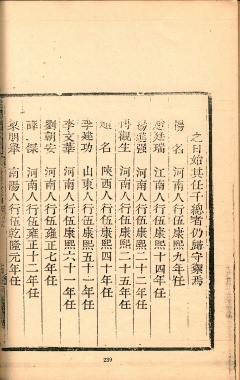 之日始其任千總者仍歸守禦焉
楊名 河南人行伍康熙九年任
廷瑞 江南人行伍康熙十四年任
楊 强 河南人行伍康熙二十二年任
冉觀生 河南人行伍康熙二十五年任
名 陝西人行伍康熙四十年任
李建功 山東人行伍康熙五十一年任
李文華 河南人行伍康熙六十一年任
劉朝安 河南人行伍雍正七年任
薛 河南人行伍雍正十二年任
朋舉 南陽人行伍乾隆元年任
239